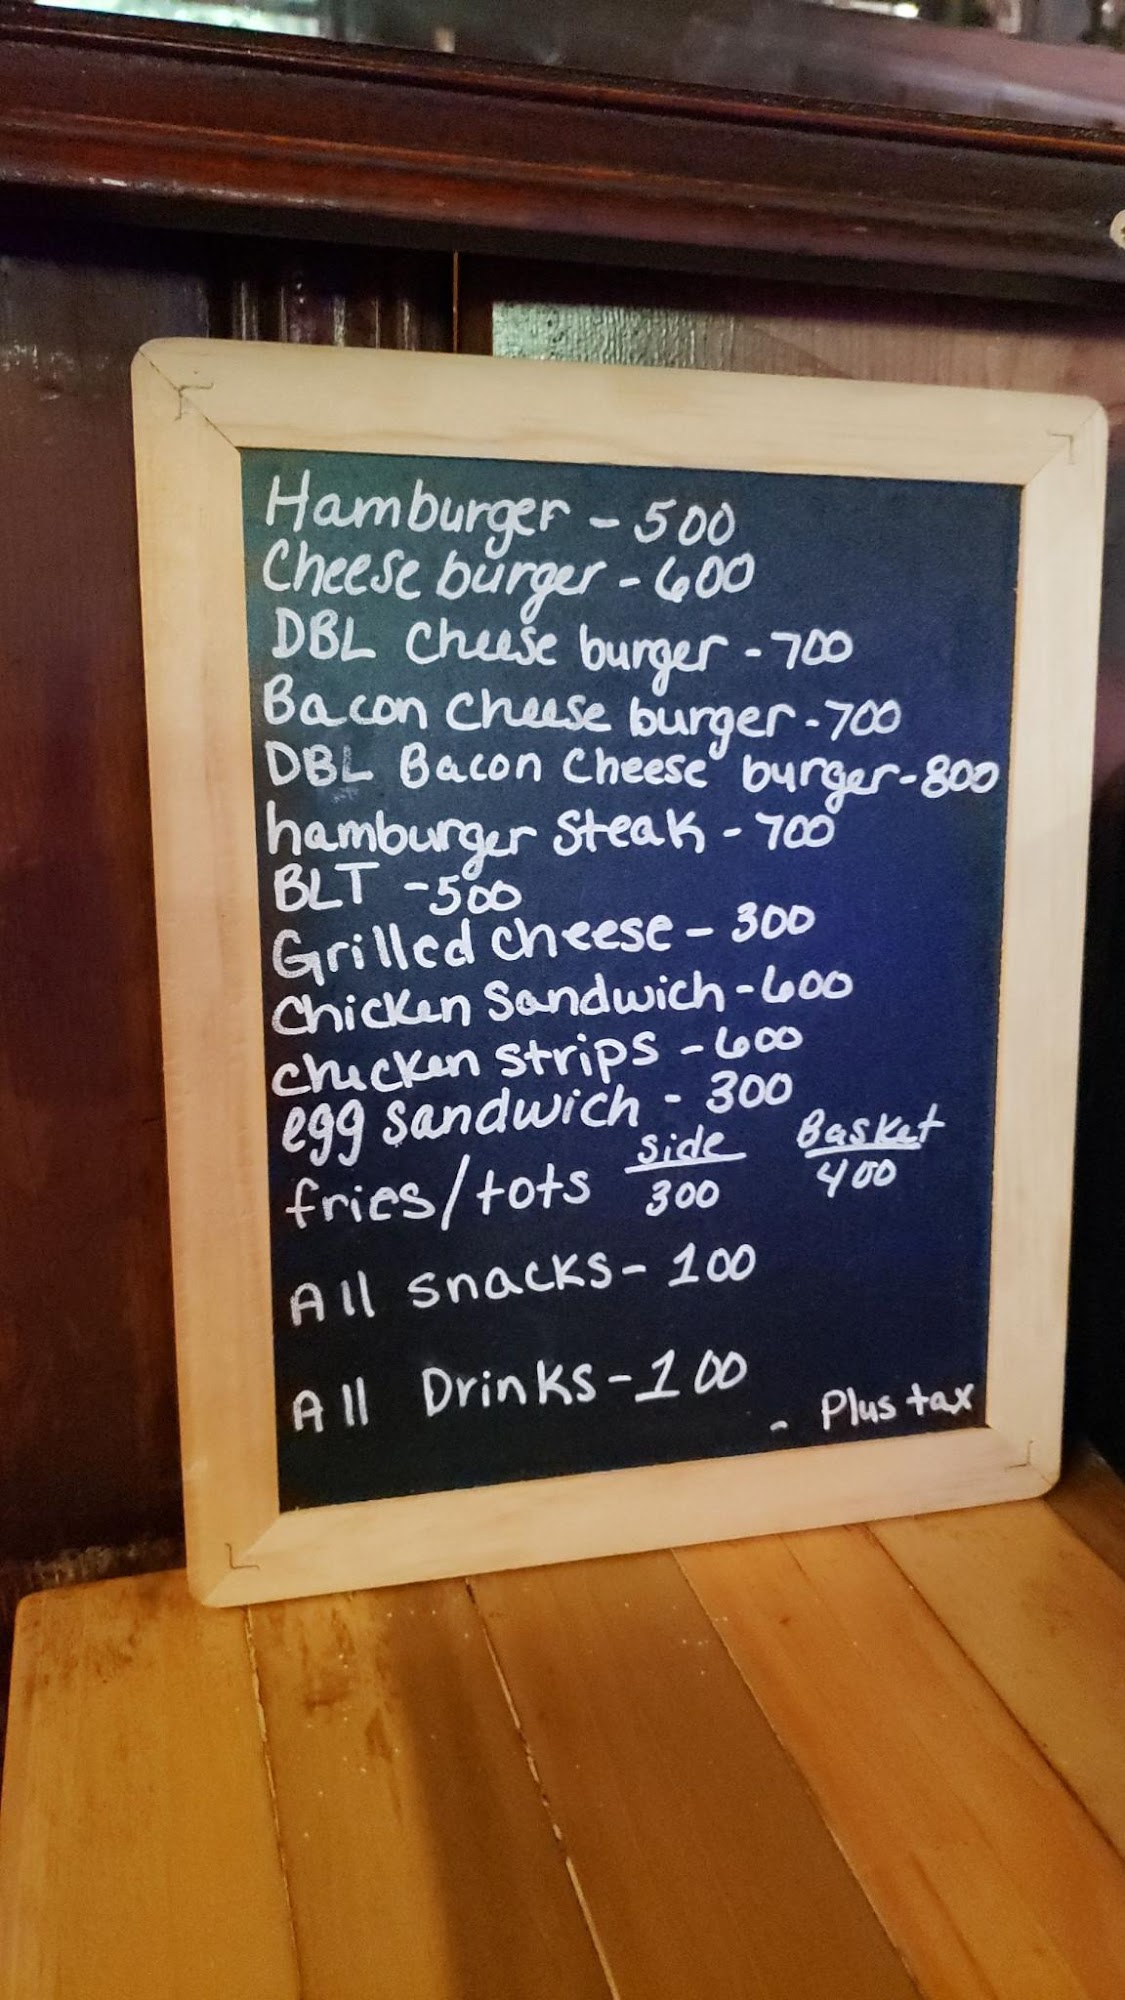 Hamburger - 500
Cheese burger - 600
DBL Cheese burger - 700
Bacon Cheese burger - 700
DBL Bacon Cheese burger - 800
hamburger Steak - 700
BLT - 500
Grilled cheese - 300
Chicken Sandwich - 600
chicken strips - 600
egg sandwich - 300
fries/tots side 300 Basket 400
All snacks - 100
All Drinks - 100
- Plus tax